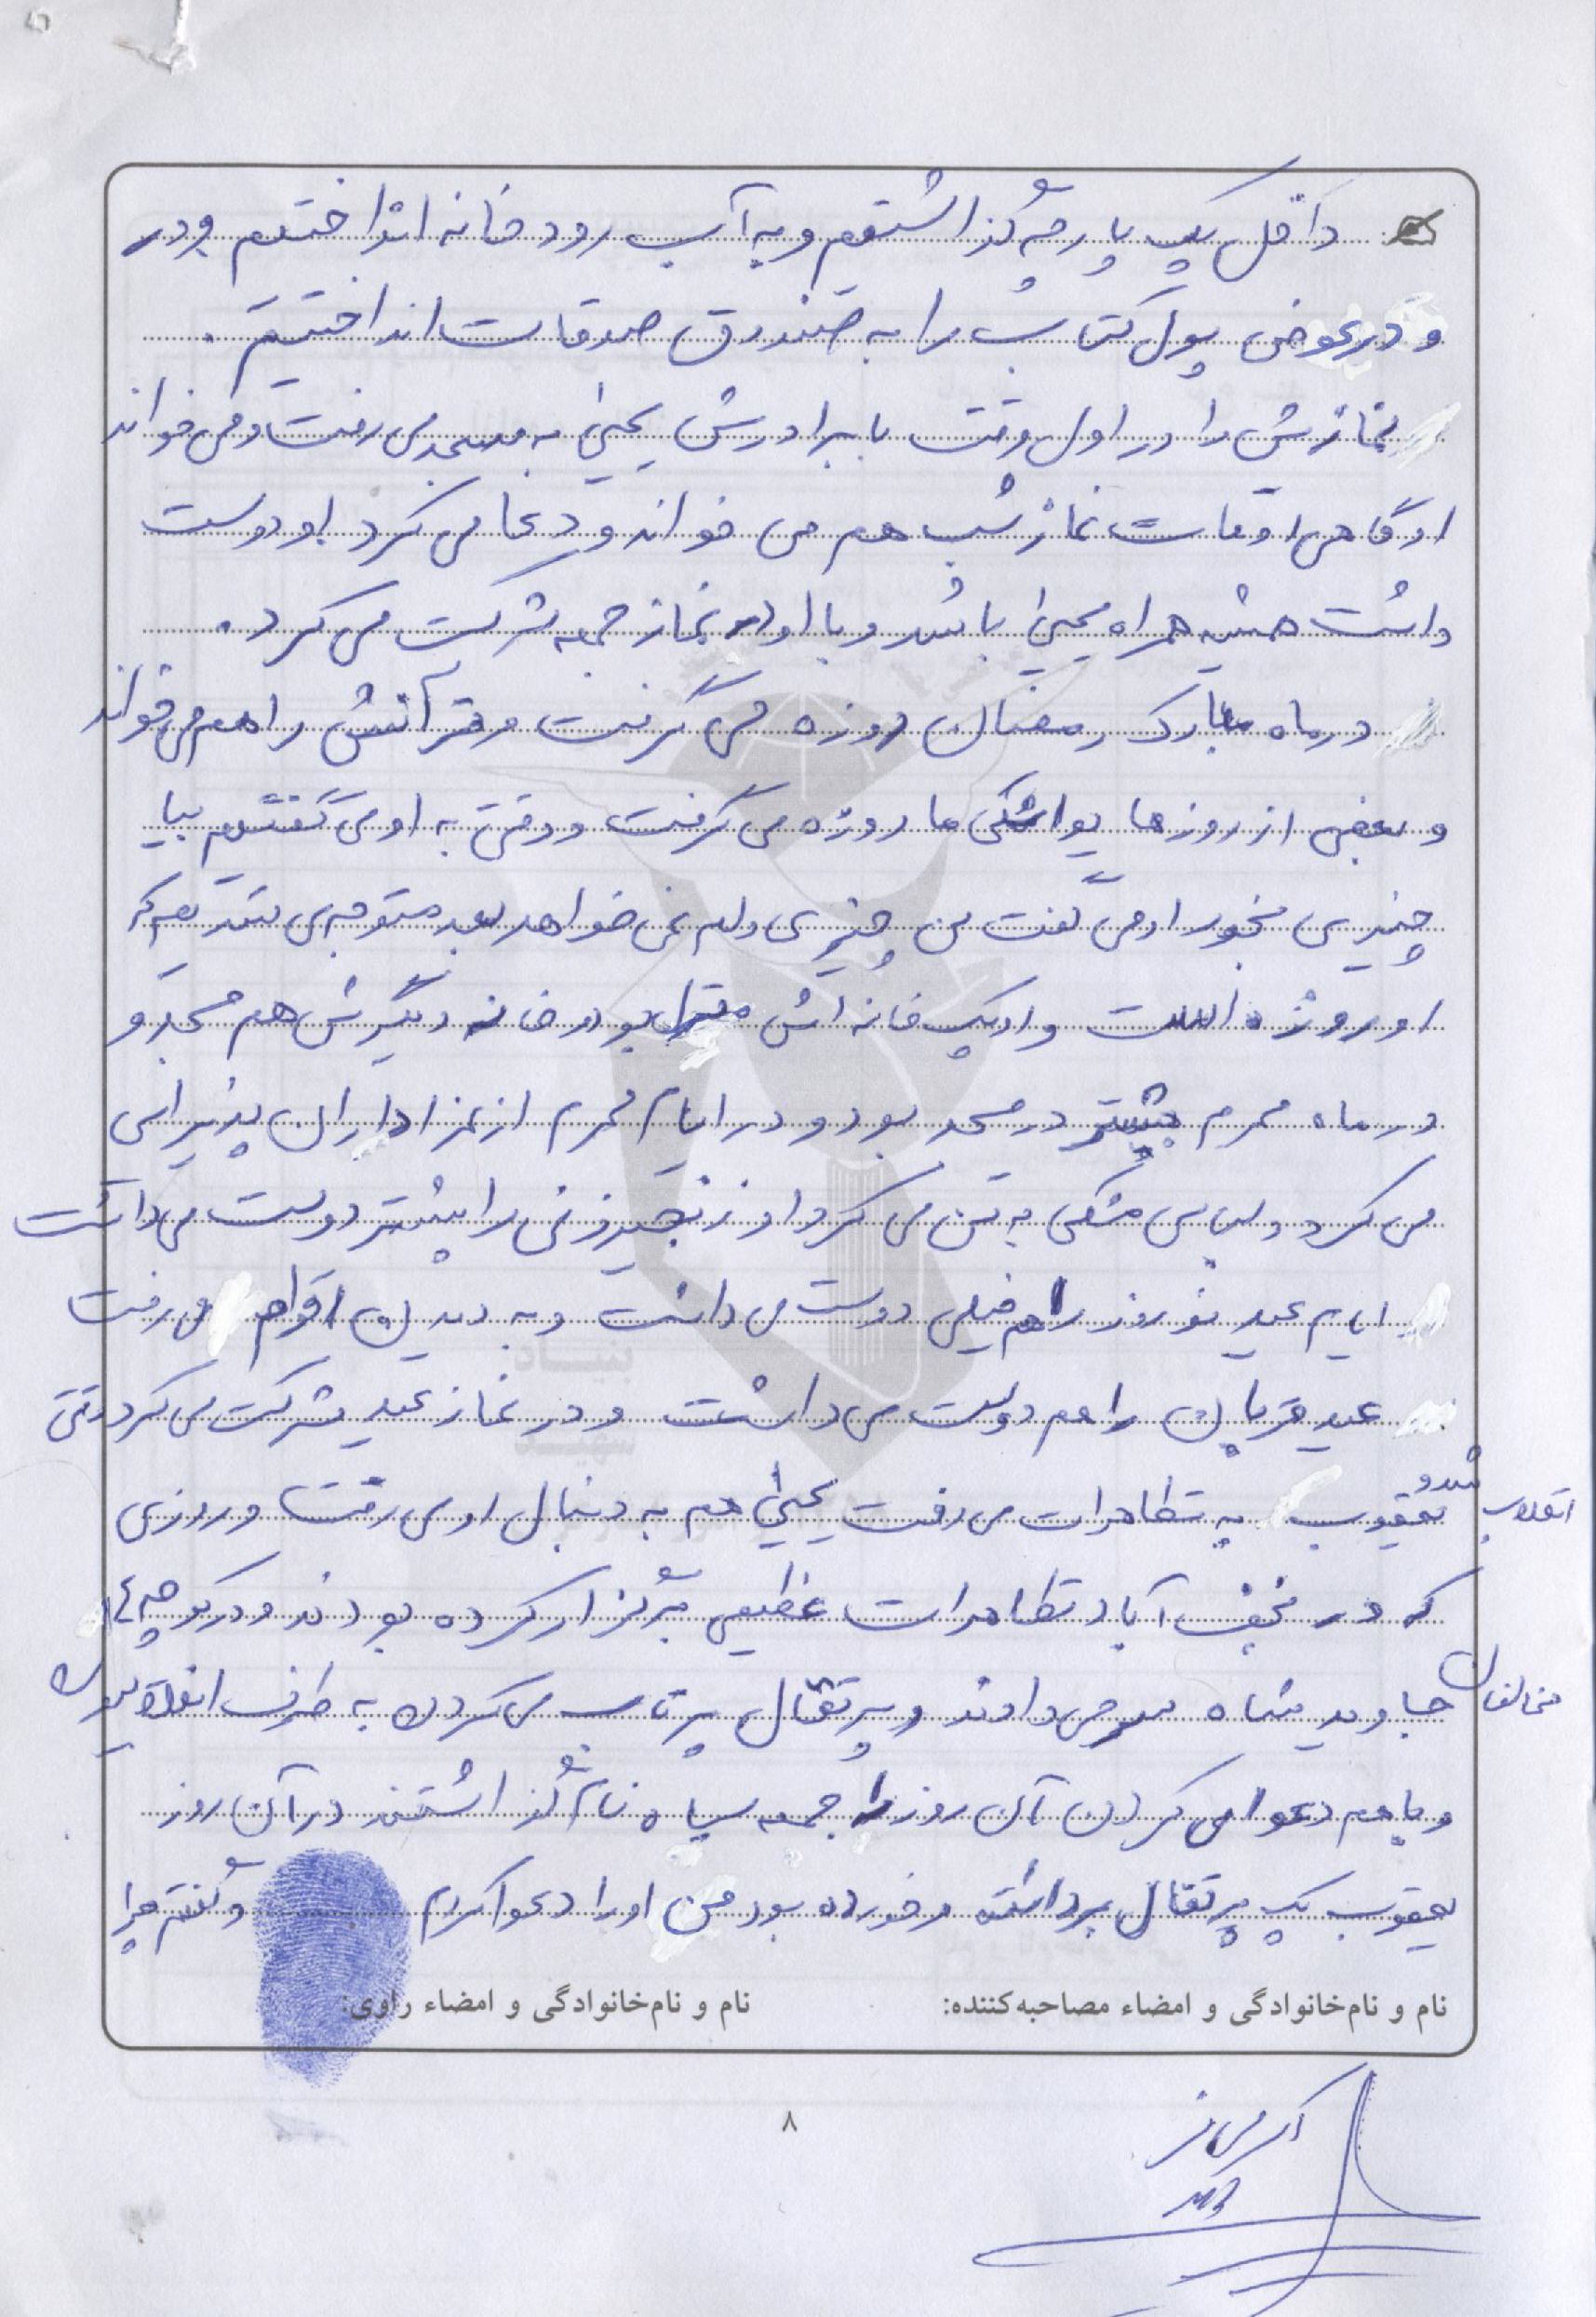 داخل یک پارچه گذاشتیم و به آب رودخانه انداختیم و در
و در عوض پول کتاب را به صندوق صدقات انداختیم .
نمازش را در اول وقت با برادرش یحیی به مسجد می رفت و می خواند
او گاهی اوقات نماز شب هم می خواند و دعا می کرد او دوست
داشت همیشه همراه یحیی باشد و با او در نماز جمعه شرکت می کرد .
در ماه مبارک رمضان روزه می گرفت و قرآنش را هم می خواند
و بعضی از روزها یواشکی ما روزه می گرفت و وقتی به او می گفتیم بیا
چیزی بخور او می گفت من چیزی دلم نمی خواهد بعد متوجه می شدیم که
او روزه است و او یک خانه اش منزل بود و خانه دیگرش هم مسجد و
در ماه محرم بیشتر در مسجد بود و در ایام محرم از عزاداران پذیرایی
می کرد و لباس مشکی به تن می کرد او زنجیر زنی را بیشتر دوست می داشت
ایام عید نوروز را هم خیلی دوست می داشت و به دیدن اقوام می رفت
عید قربان را هم دوست می داشت و در نماز عید شرکت می کرد وقتی
انقلاب شد و یعقوب به تظاهرات می رفت یحیی هم به دنبال او می رفت و روزی
که در نجف آباد تظاهرات عظیمی برگزار کرده بودند و در کوچه ها
مخالفان جاوید شاه سر می دادند و پرتقال پرتاب می کردن به طرف انقلابیون
و با هم دعوا می کردن آن روز را جمعه سیاه نام گذاشتند در آن روز
یعقوب یک پرتقال برداشته و خورده بود من او را دعوا کردم و گفتم چرا
نام و نام‌خانوادگی و امضاء مصاحبه‌کننده: نام و نام‌خانوادگی و امضاء راوی:
۸